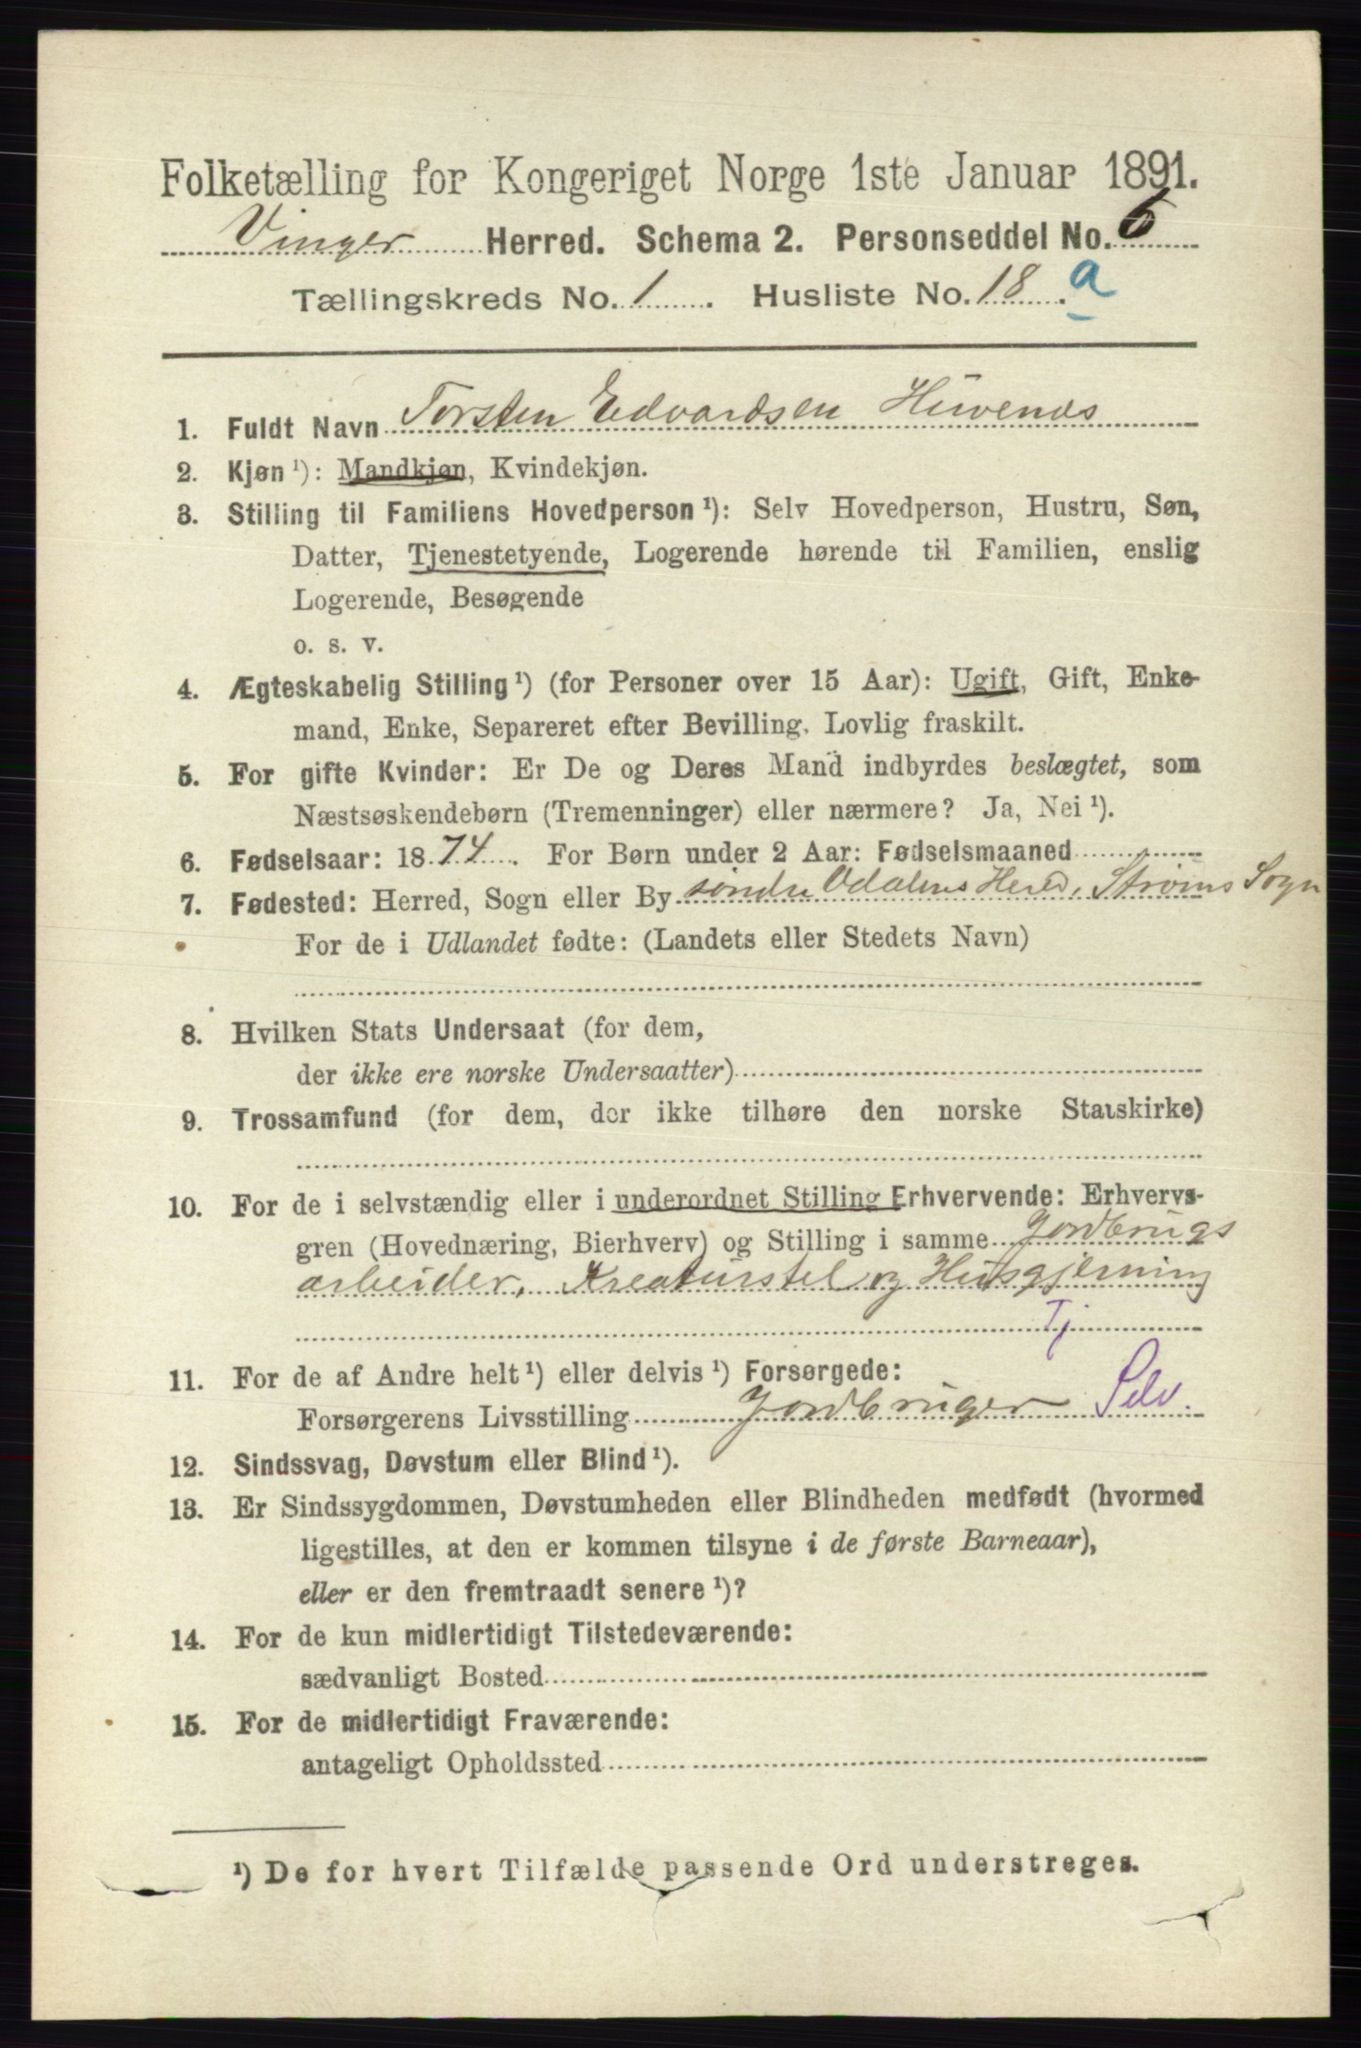 Folketælling for Kongeriget Norge 1ste Januar 1891.
Vinger Herred. Schema 2. Personseddel No. 6
Tællingskreds No. 1. Husliste No. 18. a
1. Fuldt Navn Torsten Edvardsen Huvenes
2. Kjøn ¹): Mandkjøn, Kvindekjøn.
3. Stilling til Familiens Hovedperson ¹): Selv Hovedperson, Hustru, Søn,
Datter, Tjenestetyende, Logerende hørende til Familien, enslig
Logerende, Besøgende
o. s. v.
4. Ægteskabelig Stilling ¹) (for Personer over 15 Aar): Ugift, Gift, Enke-
mand, Enke, Separeret efter Bevilling. Lovlig fraskilt.
5. For gifte Kvinder: Er De og Deres Mand indbyrdes beslægtet, som
Næstsøskendebørn (Tremenninger) eller nærmere? Ja, Nei ¹).
6. Fødselsaar: 1874. For Børn under 2 Aar: Fødselsmaaned
7. Fødested: Herred, Sogn eller By søndre Odalens Hered, Strøms Sogn
For de i Udlandet fødte: (Landets eller Stedets Navn)
8. Hvilken Stats Undersaat (for dem,
der ikke ere norske Undersaatter)
9. Trossamfund (for dem, der ikke tilhøre den norske Statskirke)
10. For de i selvstændig eller i underordnet Stilling Erhvervende: Erhvervs-
gren (Hovednæring, Bierhverv) og Stilling i samme Jordbrugs
arbeider, Kreaturstel og Husgjerning
Tj
11. For de af Andre helt ¹) eller delvis ¹) Forsørgede:
Forsørgerens Livsstilling Jordbruger Selv.
12. Sindssvag, Døvstum eller Blind ¹).
13. Er Sindssygdommen, Døvstumheden eller Blindheden medfødt (hvormed
ligestilles, at den er kommen tilsyne i de første Barneaar),
eller er den fremtraadt senere ¹)?
14. For de kun midlertidigt Tilstedeværende:
sædvanligt Bosted
15. For de midlertidigt Fraværende:
antageligt Opholdssted
¹) De for hvert Tilfælde passende Ord understreges.